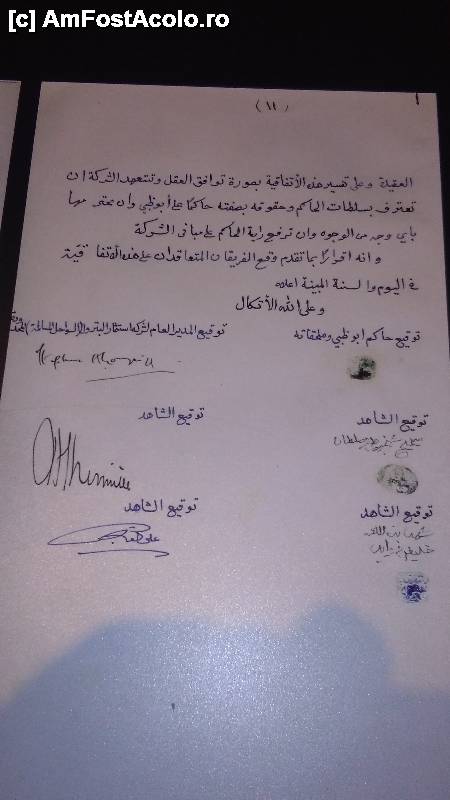 [c] AmFostAcolo.ro
(١١)
العقيدة وعلى تفسير هذه الأتفاقية بصورة توافق العقل وتتعهد الشركة ان
تعترف بسلطات الحاكم وحقوقه بصفته حاكمًا على أبوظبي وأن تحترمها
بأي وجه من الوجوه وان ترفع راية الحاكم على مبانى الشركة
و انه اقرارًا بما تقدم وقع الفريقان المتعاقدان على هذه الأتفاقية
في اليوم والسنة المبينة اعلاه
وعلى الله الأتكال
توقيع حاكم ابوظبي وملحقاته
توقيع المديرالعام لشركة استثمار البترول
توقيع الشاهد
توقيع الشاهد
توقيع الشاهد
توقيع الشاهد